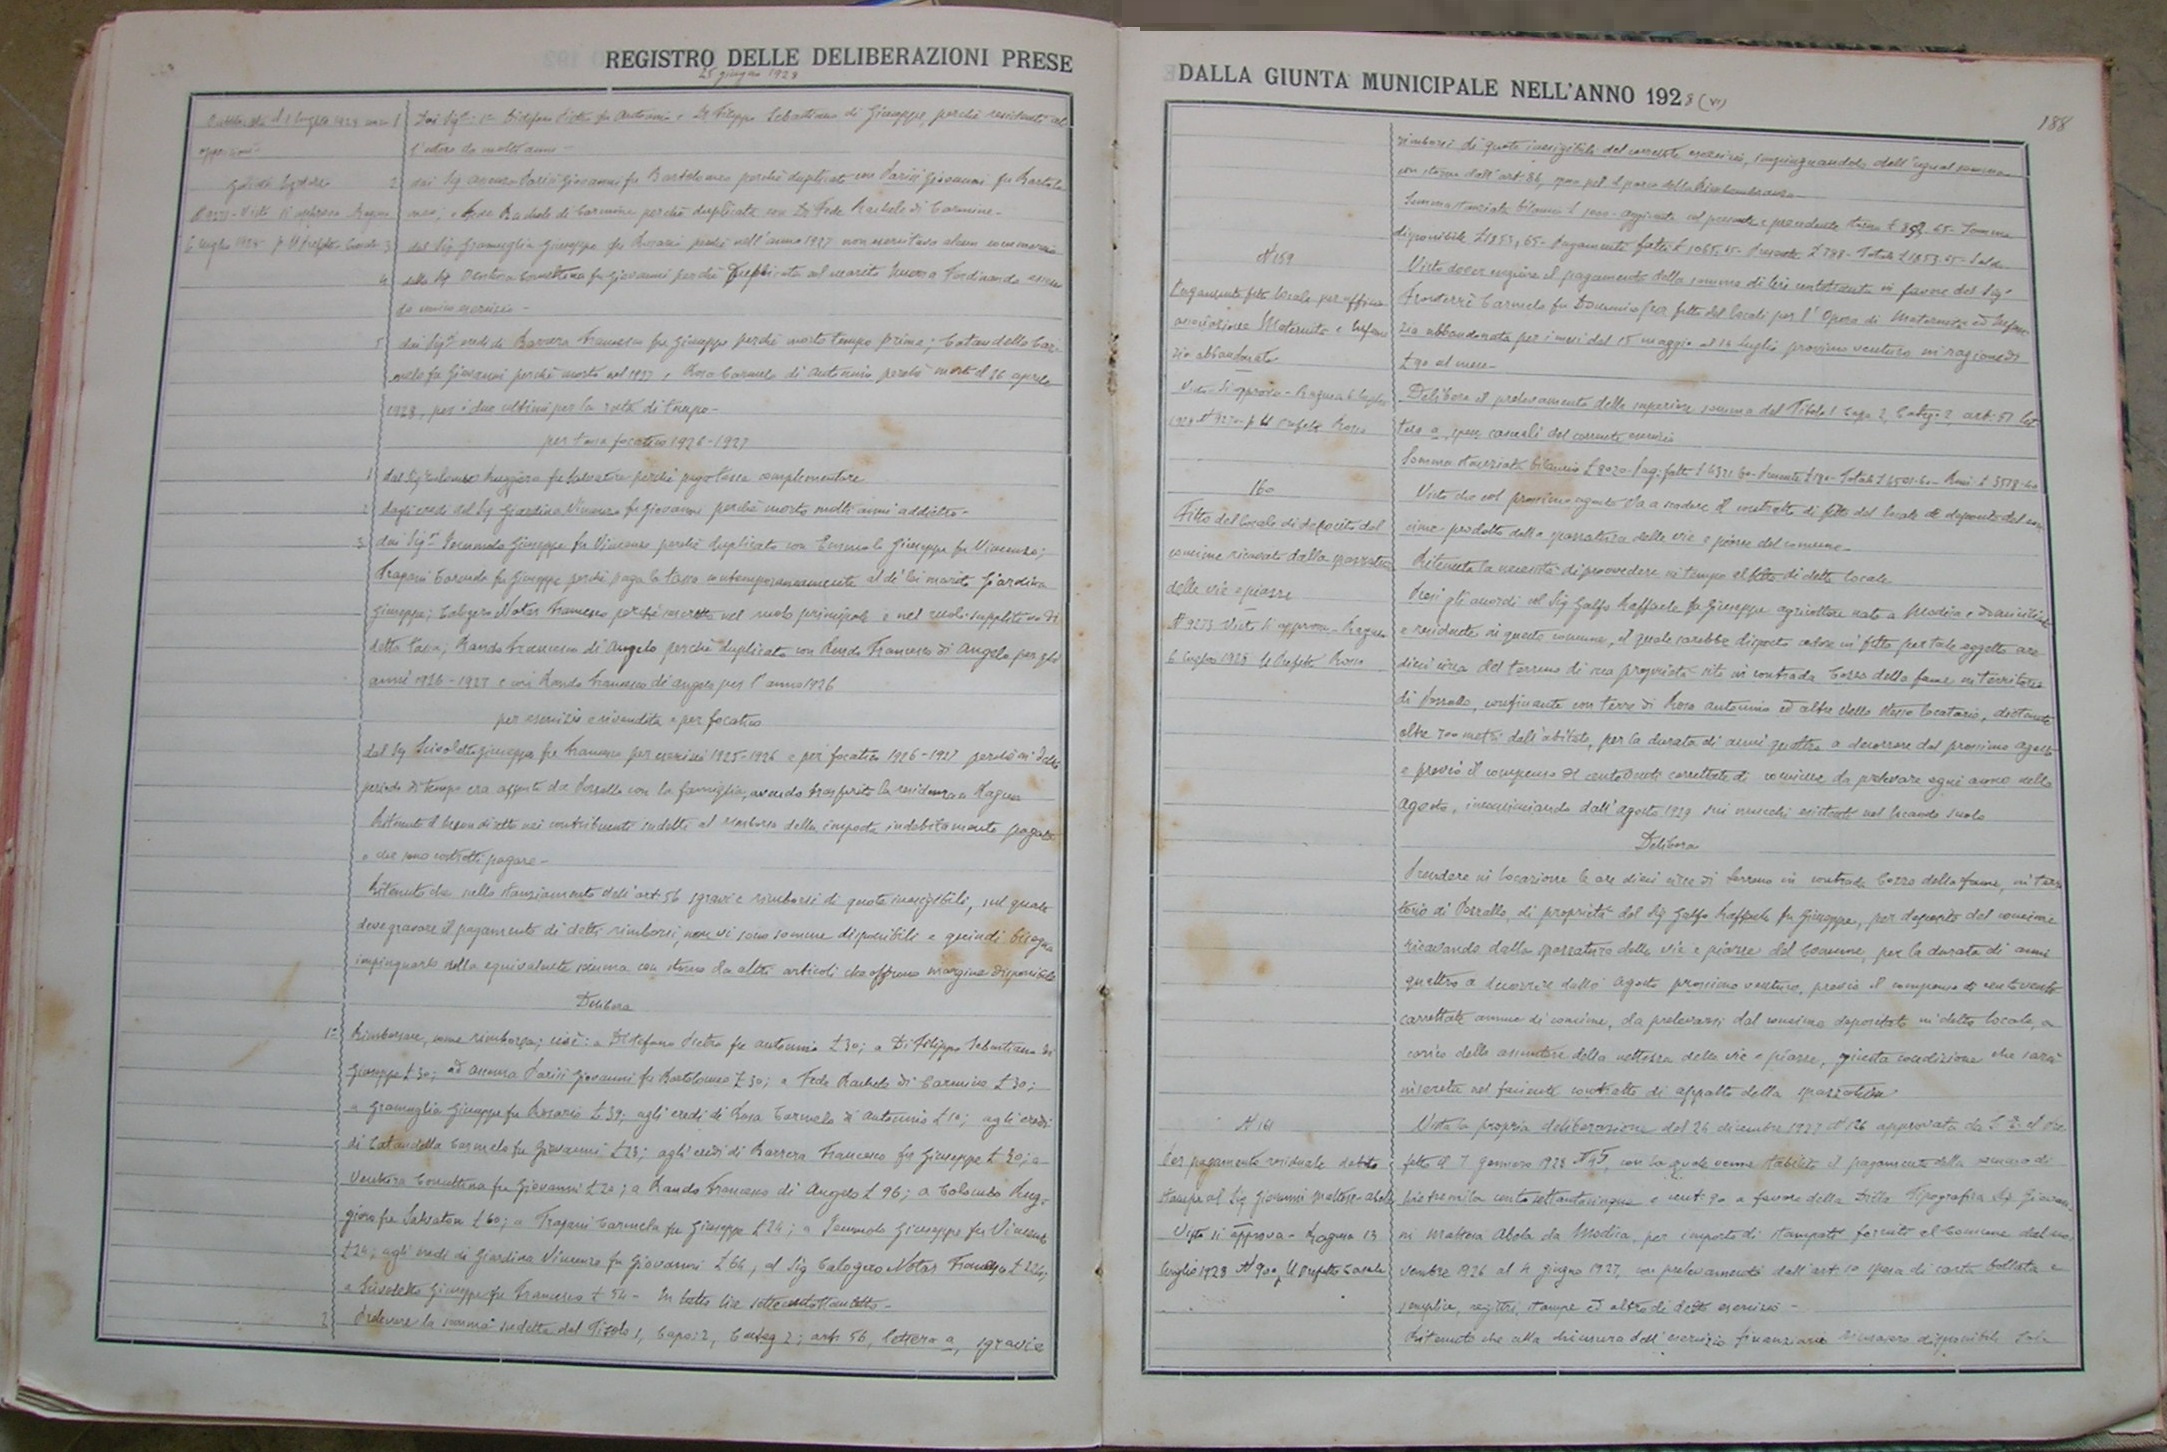 REGISTRO DELLE DELIBERAZIONI PRESE
25 giugno 1928
Pubblicata il 1 luglio 1928 senza
opposizioni
1 Dai Sigri: 1° Distefano Pietro fu Antonino e Di Filippo Sebastiano di Giuseppe, perchè residenti al
l'estero da molti anni -
2 dai Sig. Parisi Giovanni fu Bartolomeo perchè duplicato con Parisi Giovanni fu Bartolo
meo; e Fede Rachele di Carmine perchè duplicata con Di Fede Rachele di Carmine -
3 dal Sig. Gramuglia Giuseppe fu Rosario perchè nell'anno 1927 non esercitava alcun
4 dalla Sig. Ventura Concettina fu Giovanni perchè duplicata col marito Ferdinando essen
do unico esercizio -
5 dai Sigri eredi di Barrera Francesco fu Giuseppe perchè morto tempo prima; Catandella Car-
melo fu Giovanni perchè morto nel 1927, e Rosa Carmelo di Antonio perchè morto il 26 aprile
1928, per i due ultimi per la rata di tempo -
per tassa focatico 1926-1927
1 dal Sig Colombo Ruggero fu Salvatore perchè paga tassa complementare
2 dagli eredi del Sig Giardina Vincenzo fu Giovanni perchè morto molti anni addietro -
3 dai Sigri Giuseppe fu Vincenzo perchè duplicato con Giuseppe fu Vincenzo;
Trapani Carmela fu Giuseppe perchè paga la tassa contemporaneamente al di lei marito Giardina
Giuseppe; Calogero Notar Francesco perchè iscritto nel ruolo principale e nel ruolo suppletivo di
detta tassa; Rando Francesco di Angelo perchè duplicato con Rando Francesco di Angelo per gli
anni 1926-1927 e con Rando Francesco di Angelo per l'anno 1926
per esercizio e rivendita e per focatico
dal Sig Scivoletto Giuseppe fu Francesco per esercizi 1925-1926 e per focatico 1926-1927 perchè in detto
periodo di tempo era assente da Pozzallo con la famiglia, avendo trasferito la residenza a Ragusa
Ritenuto il buon diritto nei contribuenti sudetti al rimborso della imposta indebitamente pagata
e che sono costretti pagare -
Ritenuto che nello stanziamento dell'art. 56 sgravi e rimborsi di quote inesigibili, sul quale
deve gravare il pagamento di detti rimborsi, non vi sono somme disponibili e quindi bisogna
impinguarlo della equivalente somma con storno da altri articoli che offrono margine disponibile
Delibera
1° Rimborsare, come rimborsa; cioè: a Distefano Pietro fu Antonino £ 30; a Di Filippo Sebastiano di
Giuseppe £ 30; ad Parisi Giovanni fu Bartolomeo £ 30; a Fede Rachele di Carmine £ 30;
a Gramuglia Giuseppe fu Rosario £ 39; agli eredi di Rosa Carmelo di Antonio £ 10; agli eredi
di Catandella Carmelo fu Giovanni £ 23; agli eredi di Barrera Francesco fu Giuseppe £ 30; a
Ventura Concettina fu Giovanni £ 20; a Rando Francesco di Angelo £ 96; a Colombo Rug-
giero fu Salvatore £ 60; a Trapani Carmela fu Giuseppe £ 24; a Giuseppe fu Vincenzo
£ 24; agli eredi di Giardina Vincenzo fu Giovanni £ 64, al Sig Calogero Notar Francesco
a Scivoletto Giuseppe fu Francesco £ 54 - In tutto lire settecentottantotto -
2 Prelevare la somma sudetta dal Titolo 1, Capo: 2, Categ 2; art: 56, lettera a, sgravi e
DALLA GIUNTA MUNICIPALE NELL'ANNO 1928 (VI)
188
rimborsi di quote inesigibili del corrente esercizio, impinguandolo dell'ugual somma
con storno dall'art. 86, spese per il parco della Rimembranza -
Somma stanziata bilancio £ 1000 - aggiunte col presente e precedente storno £ 853.65 - Somma
disponibile £ 1853,65 - Pagamenti fatti £ 1065,65 - Presente £ 788 - Totale £ 1853.65 -
N 159
Pagamento fitto locale per ufficio
associazione Maternità e Infan
zia abbandonata
Visto - Si approva - Ragusa 6 luglio
1928 N 9270 - p Il Prefetto Rosso
Visto dover eseguire il pagamento della somma di lire centottanta in favore del Sigr
Fronterrè Carmelo fu Domenico per fitto dei locali per l'Opera di Maternità ed Infan
zia abbandonata per i mesi dal 15 maggio al 14 luglio prossimo venturo in ragione di
£ 90 al mese -
Delibera il prelevamento della superiore somma dal Titolo 1 Capo 2, Categ. 2, art: 57 let
tera a, spese casuali del corrente esercizio
Somma stanziata bilancio £ 8020 - Pag: fatti £ 4321.60 - Presente £ 180 - Totale £ 4501.60 - £ 3518.40
160
Fitto del locale di deposito del
concime ricavato dalla spazzatura
delle vie e piazze
N 9273 Visto Si approva - Ragusa
6 luglio 1928 Il Prefetto Rosso
Visto che col prossimo agosto va a scadere il contratto di fitto del locale di deposito del con
cime prodotto dalla spazzatura delle vie e piazze del comune -
Ritenuta la necessità di provvedere in tempo al fitto di detto locale
Presi gli accordi col Sig Galfo Raffaele fu Giuseppe agricoltore nato a Modica e domiciliato
e residente in questo comune, il quale sarebbe disposto cedere in fitto per tale oggetto are
dieci circa del terreno di sua proprietà sito in contrada Cozzo della fame in territorio
di Pozzallo, confinante con terre di Rosa Antonino ed altre dello stesso locatario, distante
oltre 700 metri dall'abitato, per la durata di anni quattro a decorrere dal prossimo agosto
e previo il compenso di centoventi carrettate di concime da prelevare ogni anno nello
agosto, incominciando dall'agosto 1929 sui mucchi esistenti nel locando suolo
Delibera
Prendere in locazione le are dieci circa di terreno in contrada Cozzo della fame, in terri
torio di Pozzallo, di proprietà del Sig Galfo Raffaele fu Giuseppe, per deposito del concime
ricavando dalla spazzatura delle vie e piazze del Comune, per la durata di anni
quattro a decorrere dallo agosto prossimo venturo, previo il compenso di centoventi
carrettate annue di concime, da prelevarsi dal concime depositato in detto locale, a
carico dello assuntore della nettezza delle vie e piazze, giusta condizione che sarà
inserita nel faciente contratto di appalto della spazzatura
N 161
Per pagamento residuale debito
stampe al Sig Giovanni Maltese Abela
Visto si approva - Ragusa 13
luglio 1928 N 900, Il Prefetto Casale
Vista la propria deliberazione del 26 dicembre 1927 N 126 approvata da S. E. il Pre
fetto il 7 gennaro 1928 con la quale venne stabilito il pagamento della somma di
lire tremila centosettantacinque e cent. 90 a favore della Ditta Tipografica Sig Giovan
ni Maltese Abela da Modica, per importo di stampati forniti al Comune dal no
vembre 1926 al 4 giugno 1927, con prelevamento dall'art. 10 spesa di carta bollata e
semplice, registri, stampe ed altro di detto esercizio -
Ritenuto che alla chiusura dell'esercizio finanziario rimasero disponibili sole